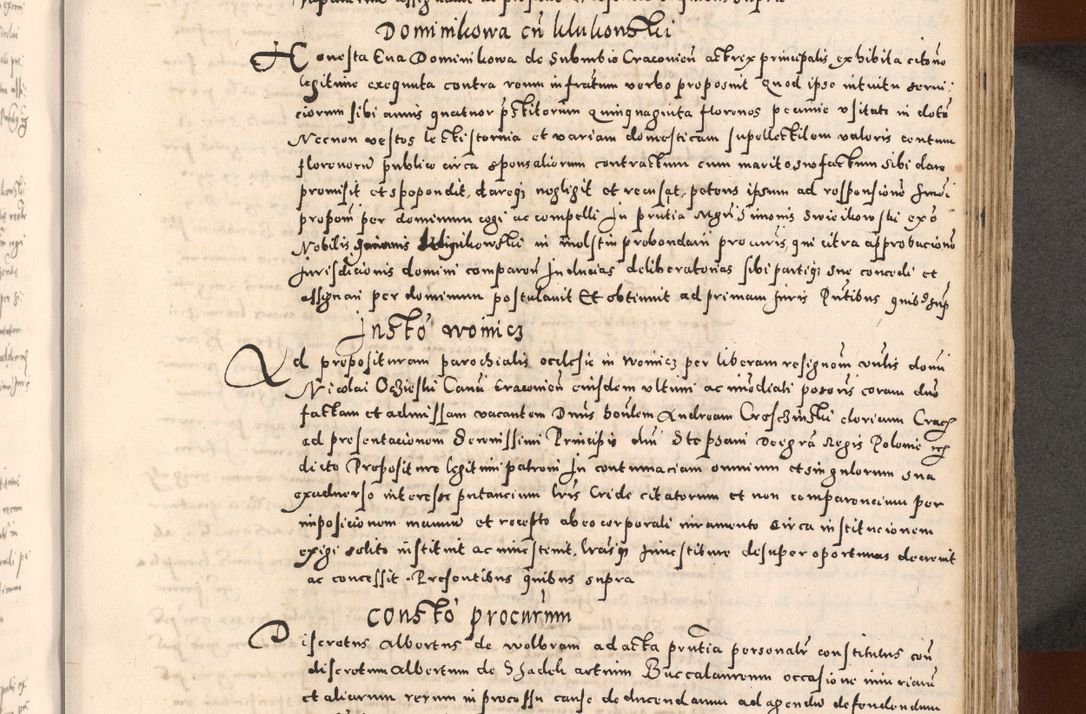 Dominikowa cū klukowski
Honesta Eua Dominikowa de Suburbio Cracovien actrix principalis exhibita citōne
legitime exequuta contra reum infratum verbo proposuit Quod ipse intuitu servi
ciorum sibi annis quatuor pstitorum quinquaginta florenos pecunie usitate in dote
Necnon vestes lectisternia et variam domesticam supellectilem valoris centum
florenorū publice circa sponsaliorum contractum cum marito suo factum sibi dare
promisit et spopondit, dareq negligit et recusat, petens ipsum ad responsionē
proposi per dominum cogi ac compelli In pntia Simonis Swiecikowski ex
Nobilis in probandarū procuris, qui citra approbacionē
Jurisdicionis domini comparen Inducias deliberatorias sibi partiq sue concedi et
assignari per dominum postulavit Et obtinuit ad primam Juris Pntibus quibus sup
Instō woinicz
Ad preposituram parochialis ecclesie in woinicz per liberam resignom dnni
Nicolai Oczieski Canci Cracovien eiusdem ultimi ac imediati possoris coram dno
factam et admissam vacantem Dnus honlem Andream Croszinski clericum Crac
ad presentacionem Serenissimi Principis dni Stephani Dei gra Regis Polonie
dicte Prepositure legitimi patroni In contumaciam omnium et singulorum sua
exadverso interesse putancium Lris Cride citatorum et non comparencium per
imposicionem manuū et recepto ab eo corporali iuramento circa institucionem
exigi solito instituit ac investivit, lrasq Investiture desuper oportunas decrevit
ac concessit. Presentibus quibus supra
Constō procurum
Discretus Albertus de wolbram ad acta pntia personalr constitutus
discretum Albertum de artium Baccalaureum occasione iniuriarū
et aliarum rerum in processu cause deducendarum ad agendū defendendum